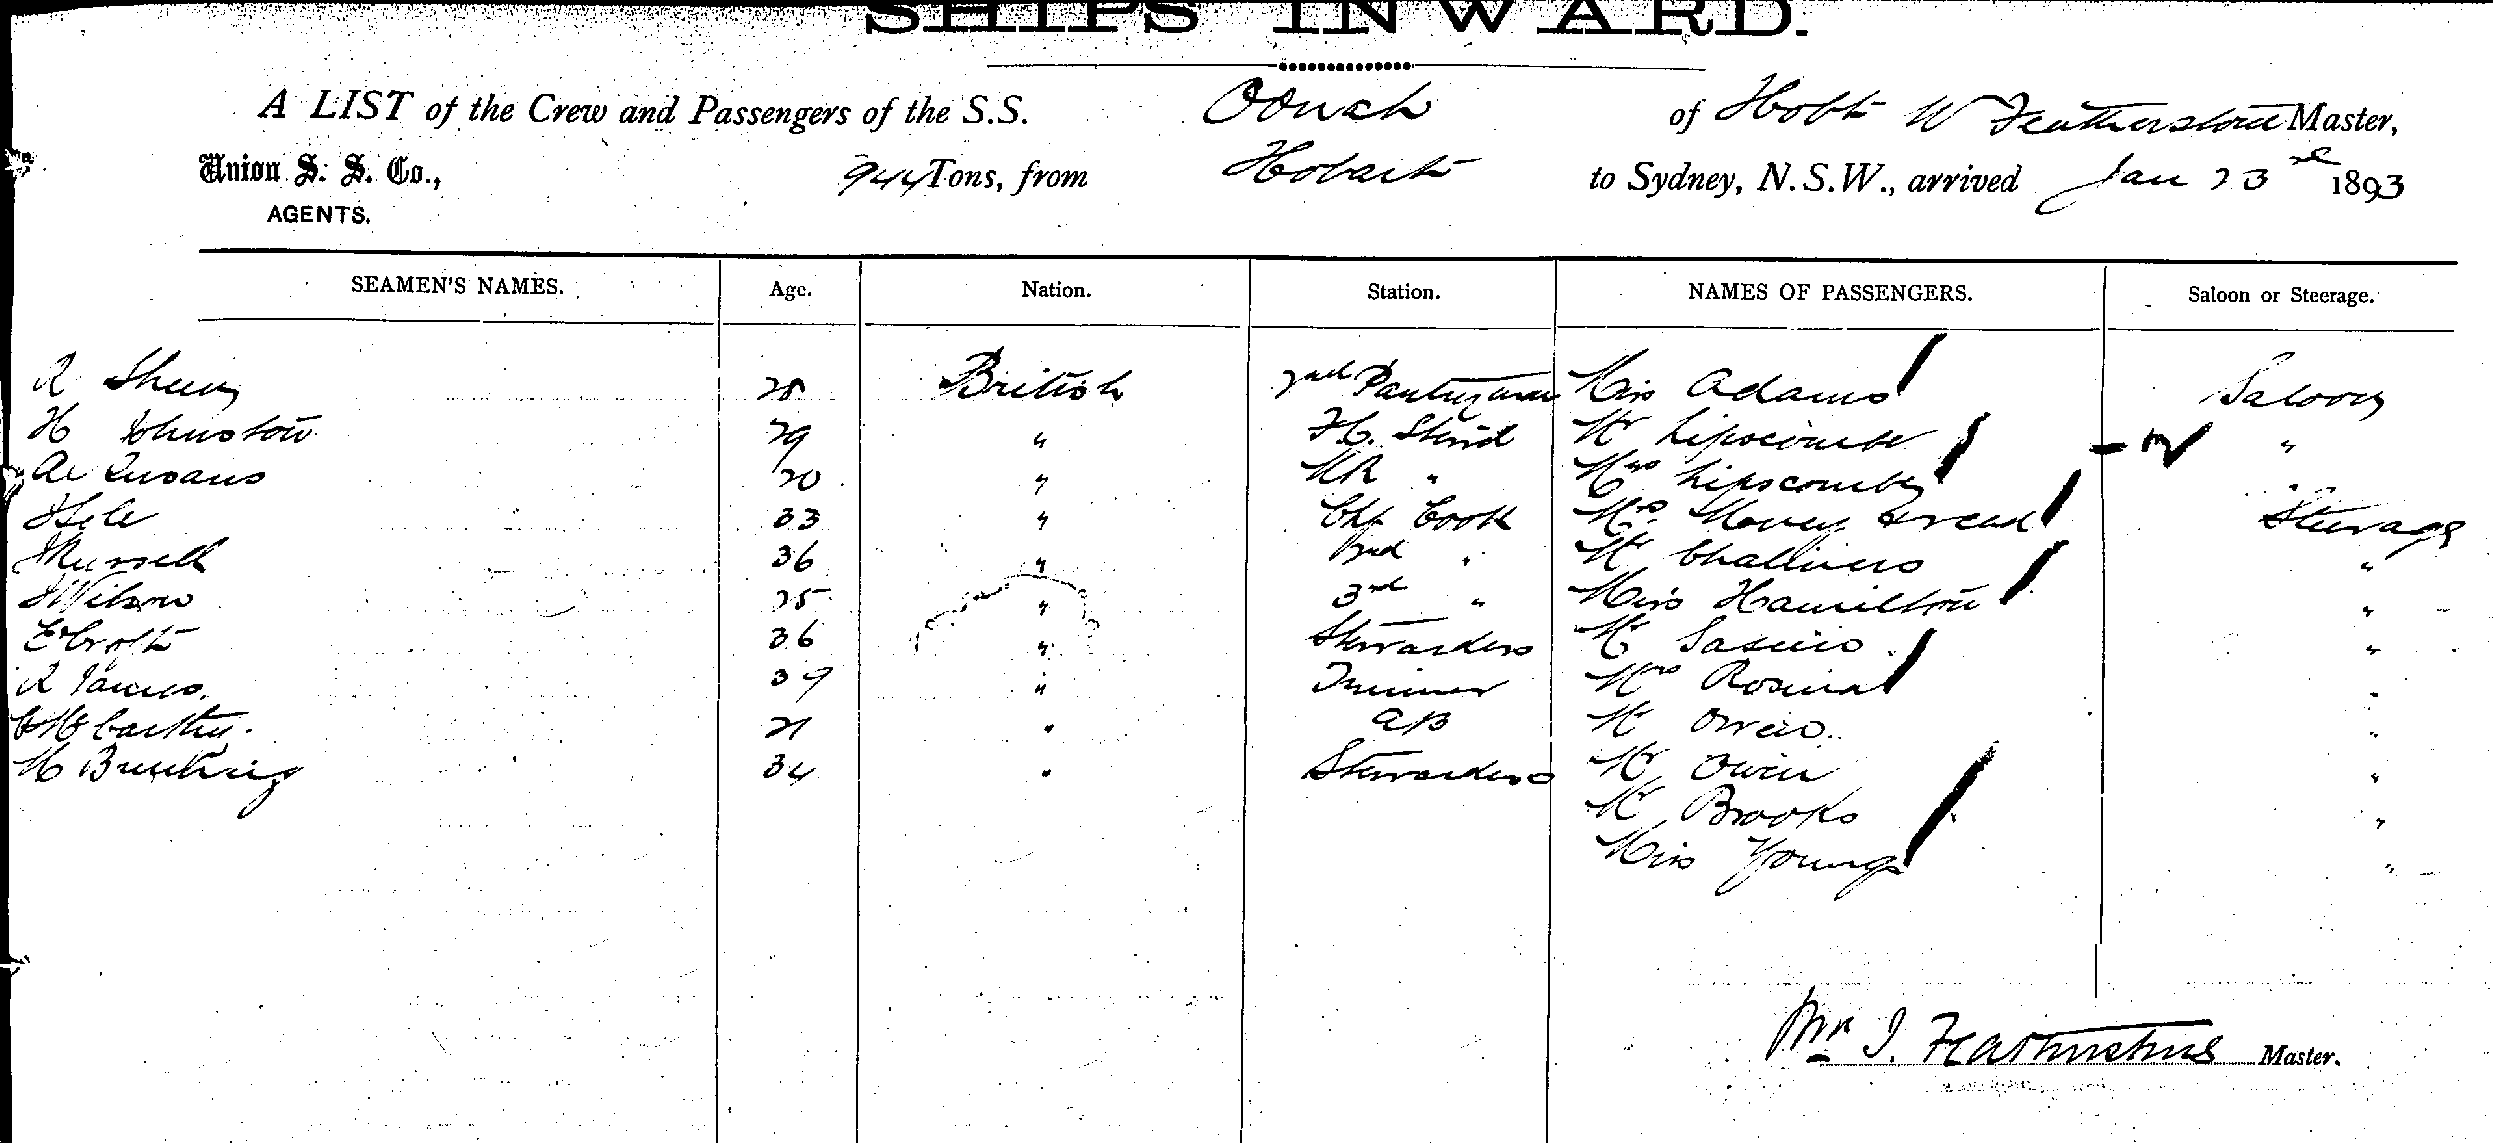 SHIPS INWARD.
A LIST of the Crew and Passengers of the S.S. Oonah of Hobt W Featherstone Master,
Union S. S. Co., 944 Tons, from Hobart to Sydney, N.S.W., arrived Jan 23rd 1893
AGENTS.
SEAMEN'S NAMES. Age. Nation. Station. NAMES OF PASSENGERS. Saloon or Steerage.
R 28 British 2nd Pantryman Miss Adams Saloon
H Johnstone 29 " F.C. Stewd Mr Lipscombe "
20 " " Mrs Lipscombe "
33 " Chf Cook Mrs Steerage
Russell 36 " 2nd " Mr "
Wilson 25 " 3rd " Miss Hamilton "
E Croft 36 " Stewardess Mr "
R James. 39 " Trimmer Mrs Rosina "
McCarthy. 21 " AB Mr Owen. "
M Bunting 34 " Stewardess Mr Owen "
Mr Brooks "
Miss Young "
Wm J. Featherstone Master.